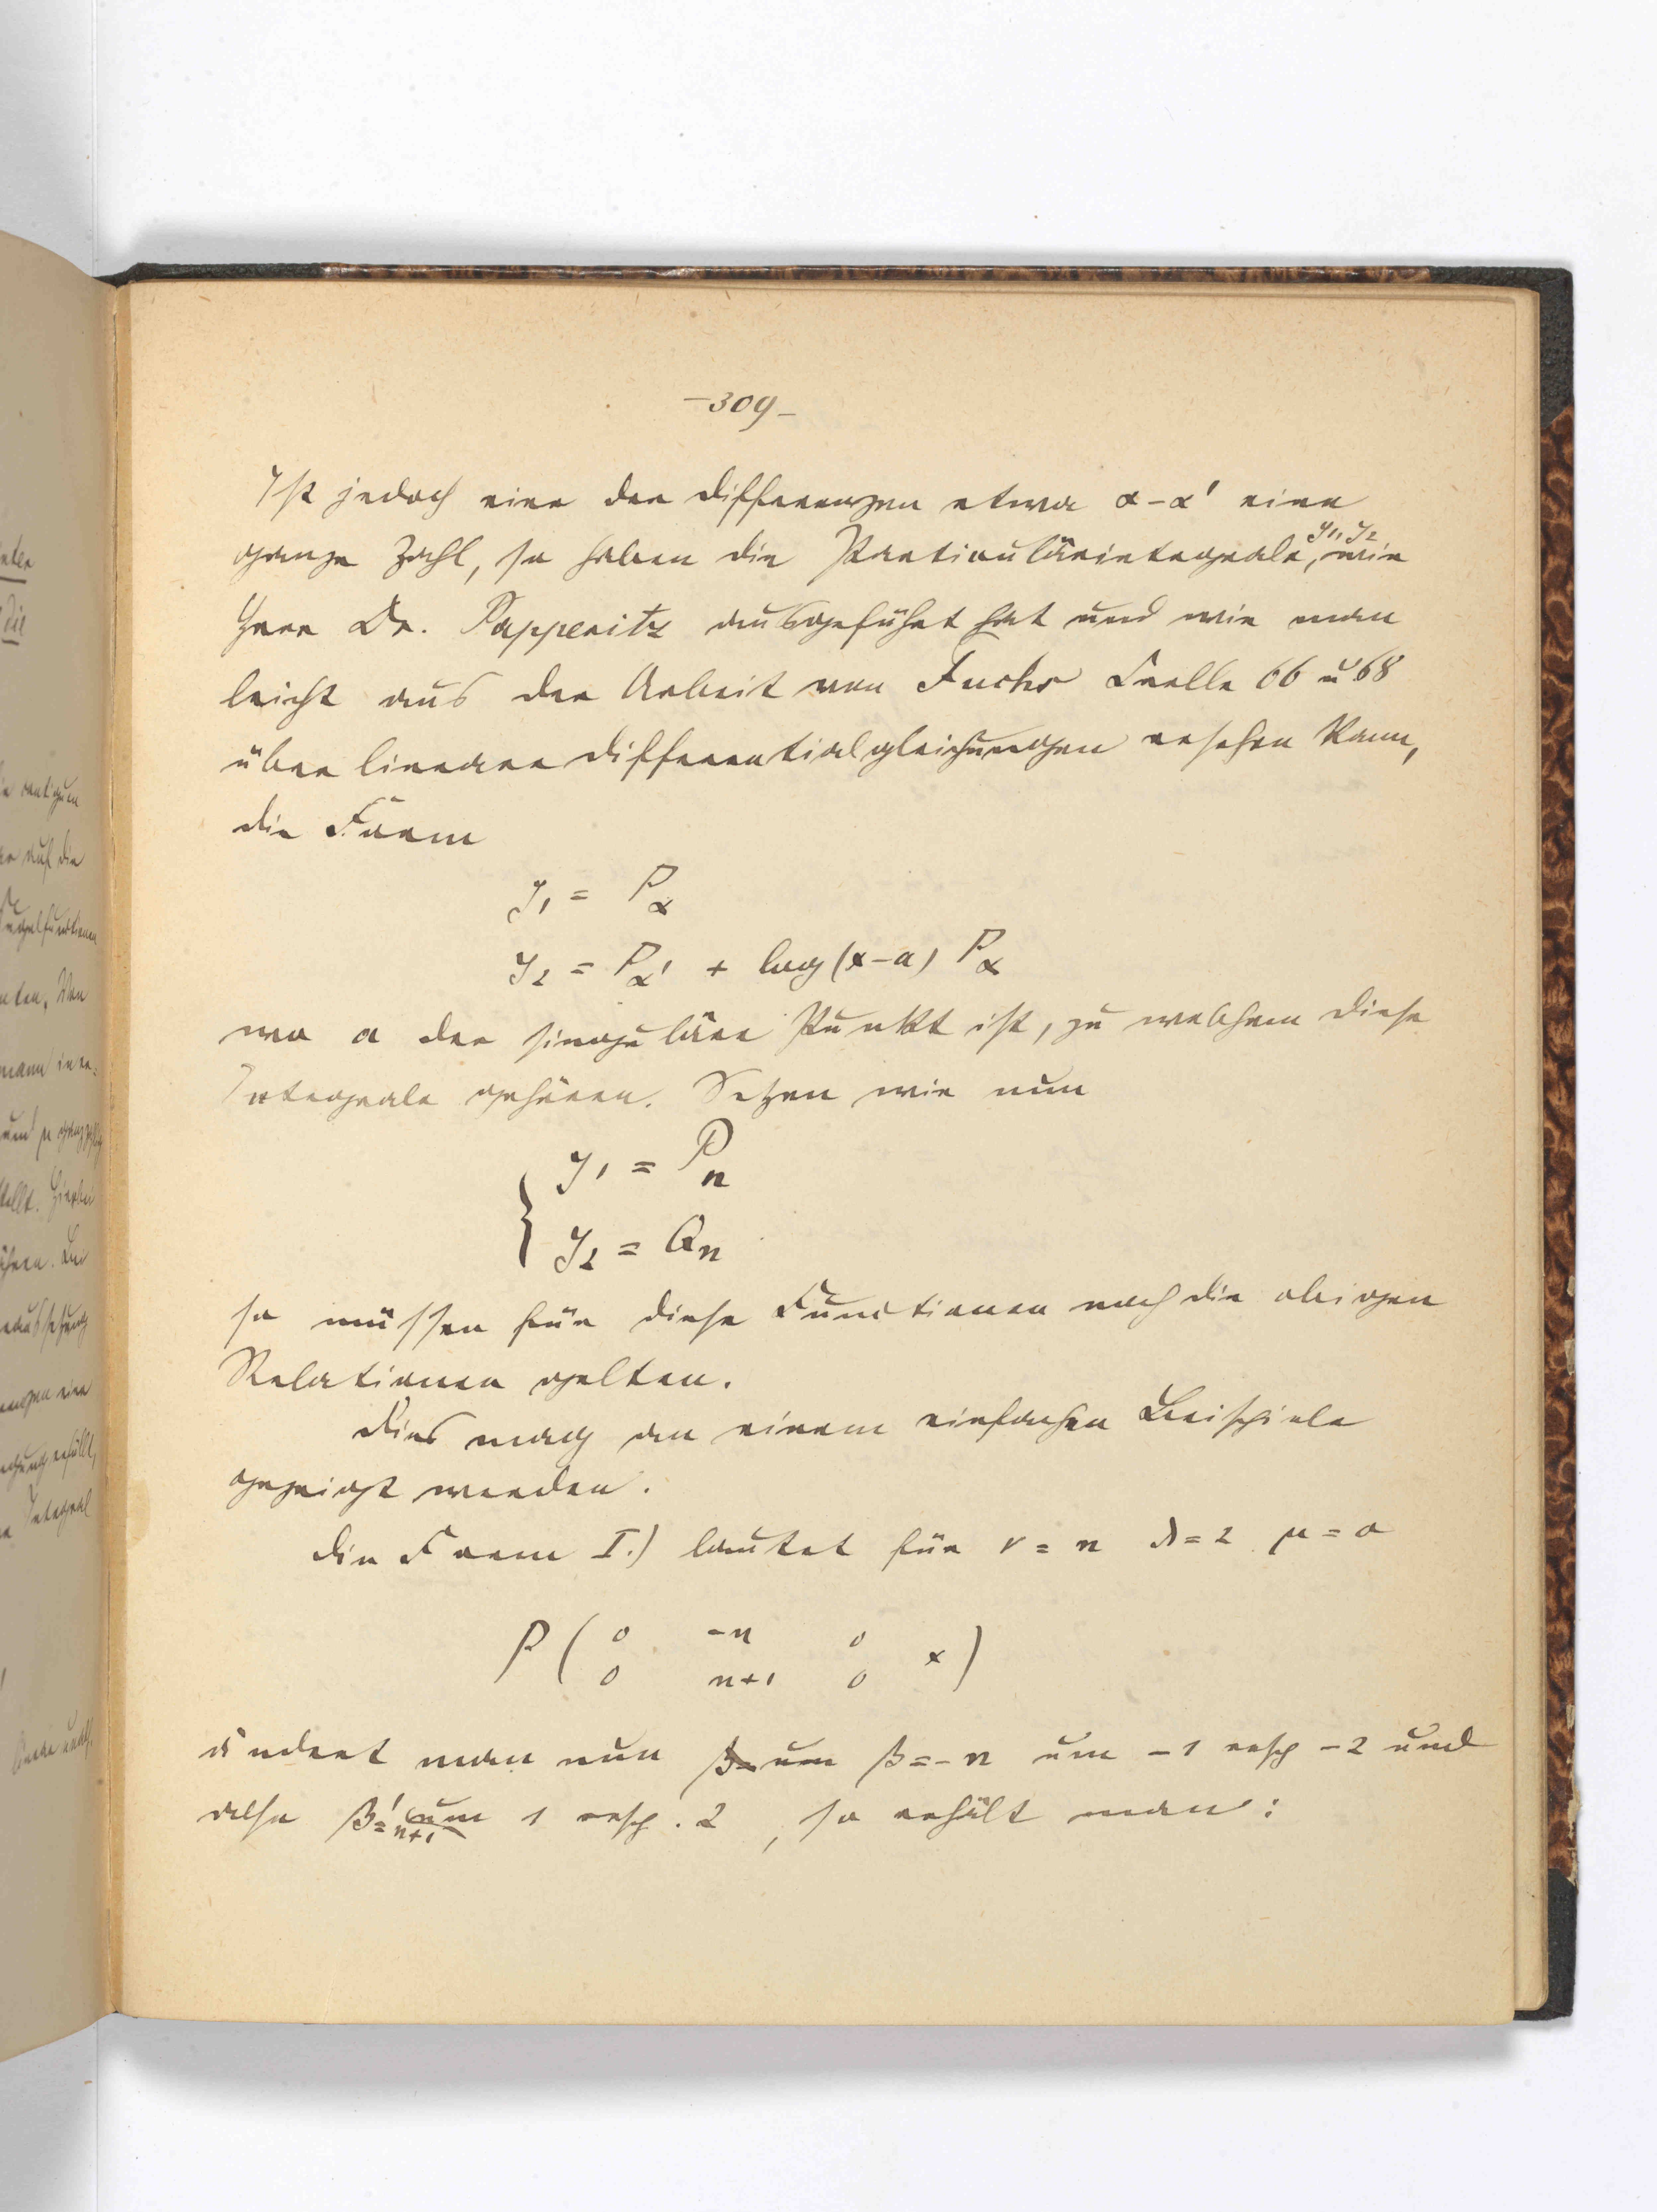 -309-
Ist jedoch eine der Differenzen etwa α-α' eine
ganze Zahl, so haben die Particulärintegrale y₁, y₂, wie
Herr Dr. Papperitz ausgeführt hat und wie man
leicht aus der Arbeit von Fuchs Crelle 66 u 68
über lineare Differentialgleichungen ersehen kann,
die Form
y₁ = P_α
y₂ = P_α' + log(x-a) P_α
wo a der singuläre Punkt ist, zu welchem diese
Integrale gehören. Setzen wir nun
y₁ = P_n
y₂ = Q_n
so müssen für diese Functionen noch die obigen
Relationen gelten.
Dies mag an einem einfachen Beispiele
gezeigt werden.
Die Form I.) lautet für ν = n λ = 2 μ = 0
P ( 0 -n 0 x )
0 n+1 0
ändert man nun β um β = -n um -1 resp -2 und
also β' = n+1 um 1 resp. 2, so erhält man:
nter
die
auf die
mann